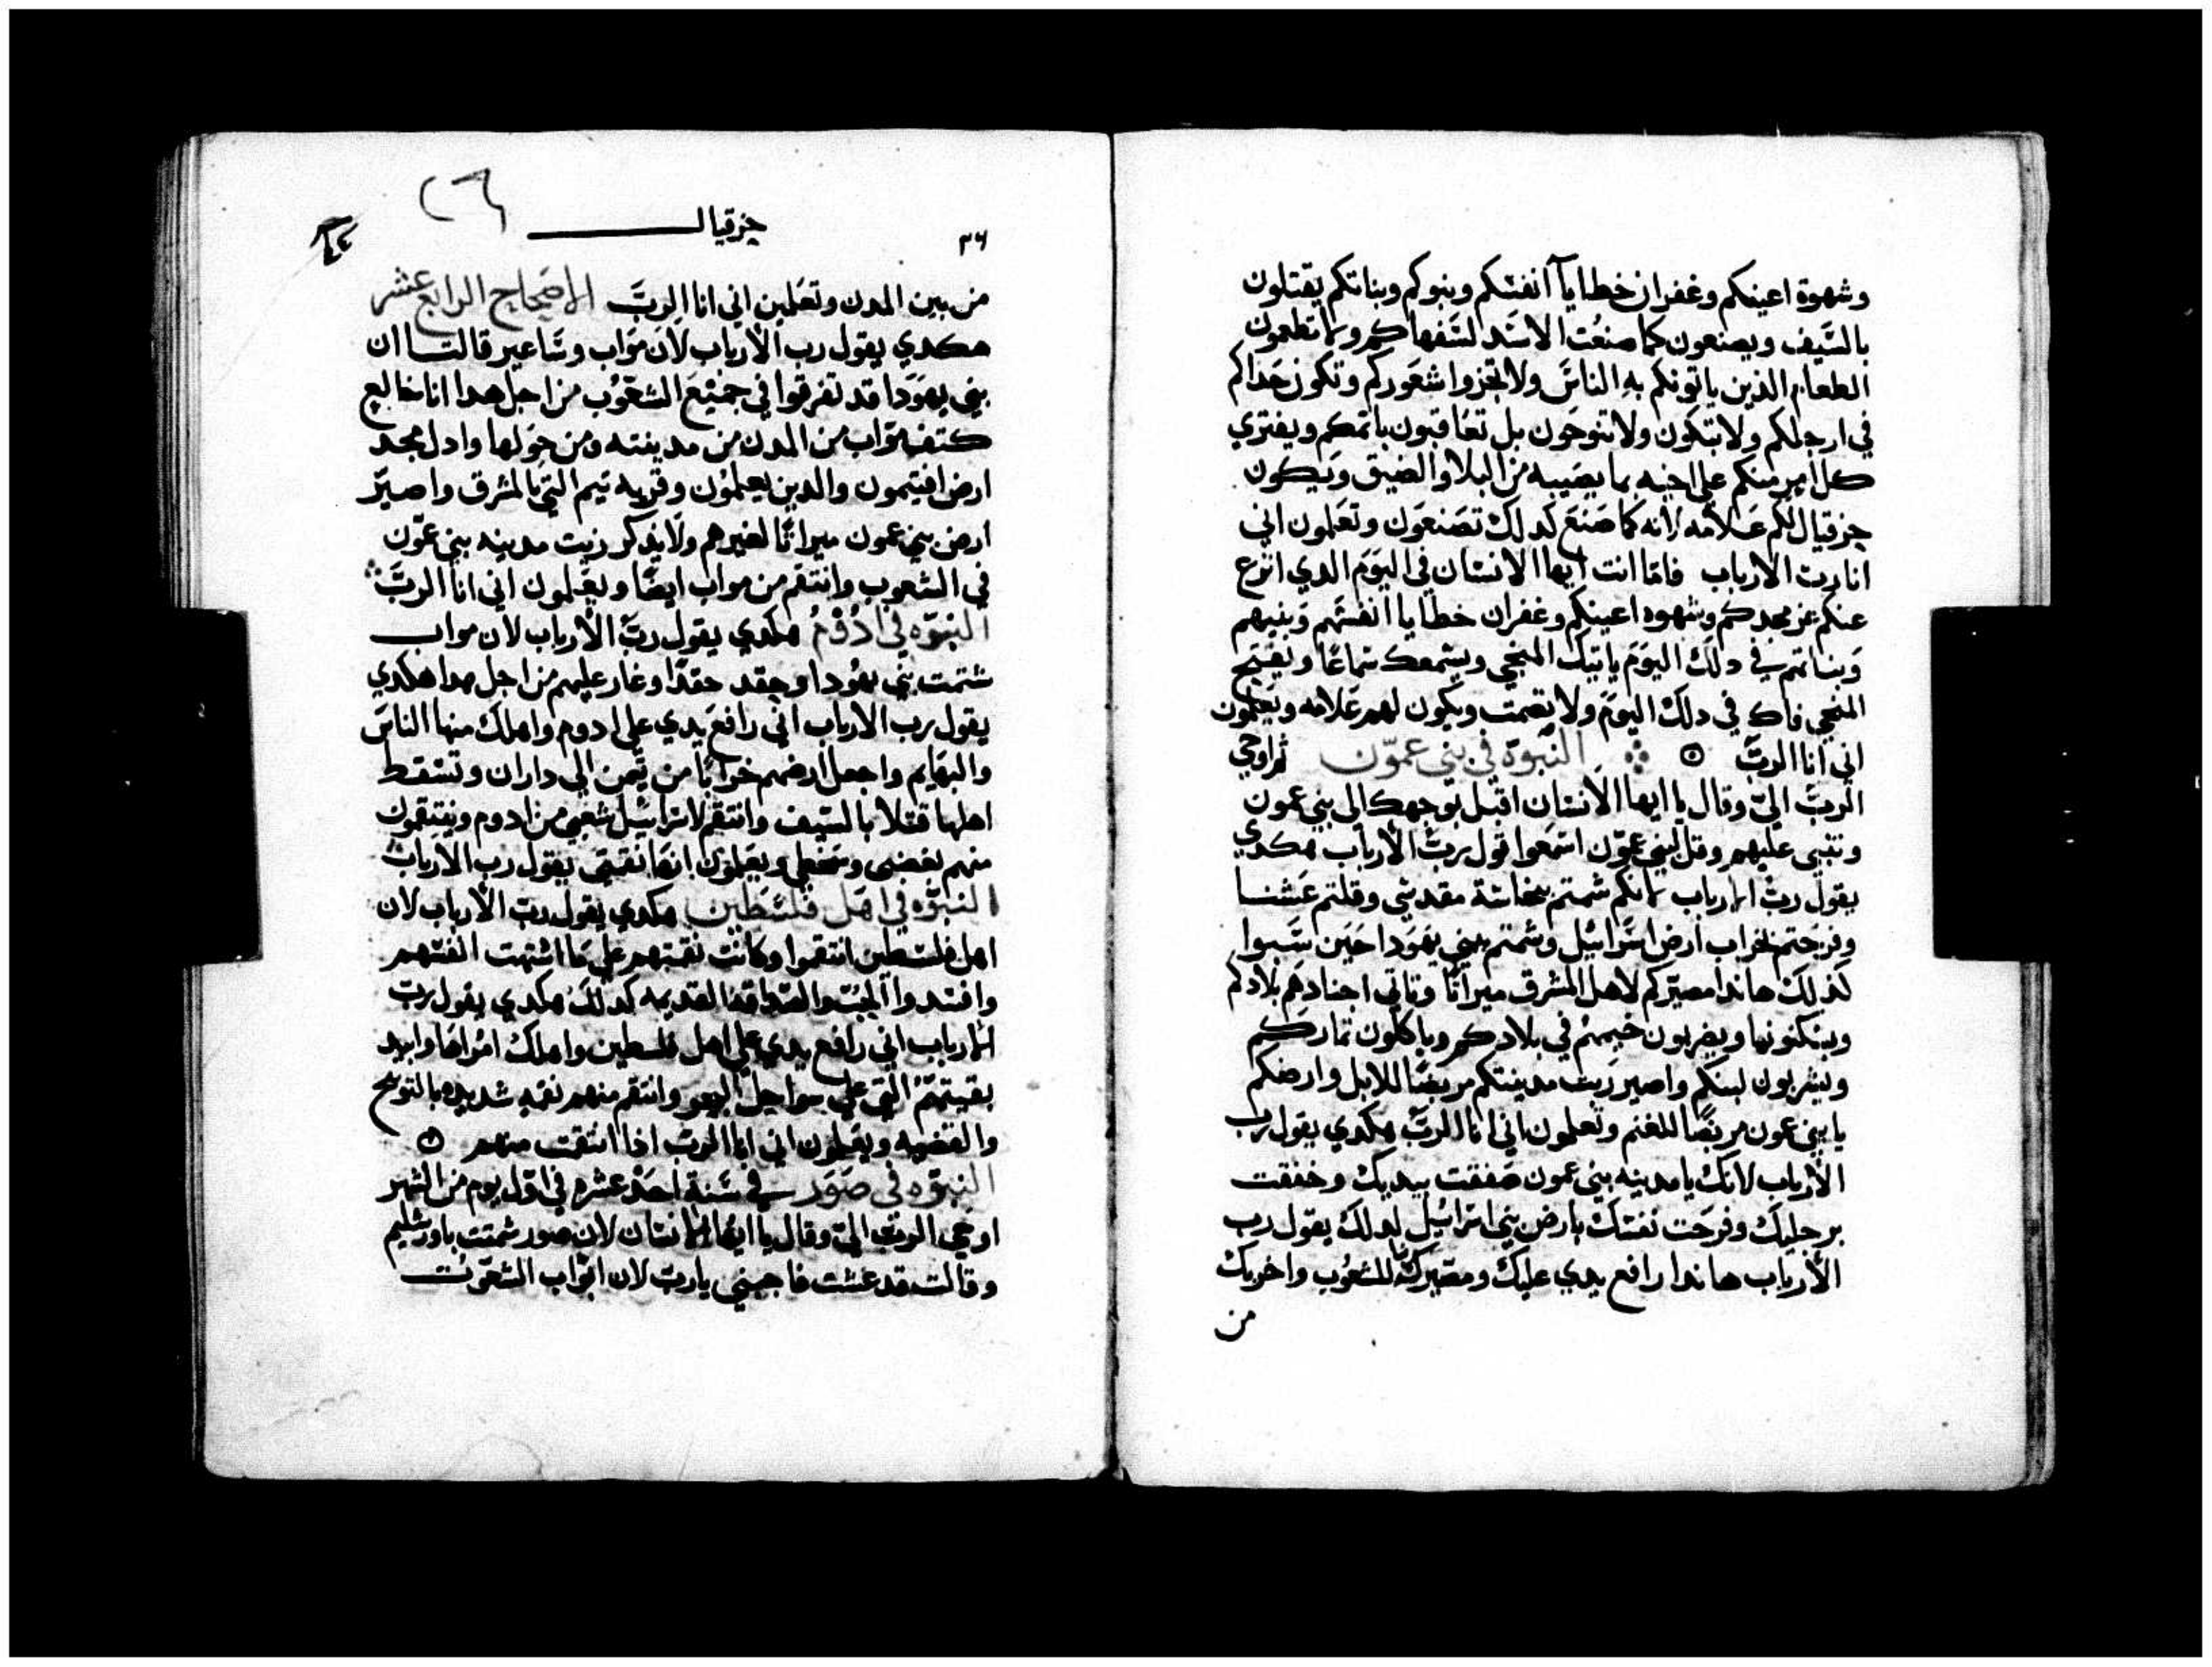 وشهوة اعينكم وغفران خطايا انفسكم وبنوكم وبناتكم يقتلون
بالسَّيف ويصنعون كما صنعُت الاسَد لسَفهاكم ولا تطعمون
الطعام الذين ياتونكم به الناسَ ولا تجزوا شعَوركم وتكون حَذاكم
في ارجلكم ولا تبكون ولا تنوحَون بل تعَاقبون باتمكم ويفتري
كل امير منكم علي اخيه بما يصَيبه من البلا والضيق وَيكون
حزقيال لكم عَلامه لانه كما صَنعَ كدلك تصَنعَون وتعَلمون اني
انا رب الارباب فامّا انت ايها الانسَان في اليَوَم الدي انزع
عنكم عز مجدكم وشهوه اعينكم وغفران خطايا انفسَهم وَبنيهم
وَبناتهم في دلك اليوَم ياتيك المنجي ويسَمعك سَماعًا ويفتح
المنجي فاك في دلك اليوَم ولا تصَمت ويكون لهم عَلامه ويَعلمون
اني انا الربَّ النبوّة في بني عموّن ثم اوحي
الربَّ اليّ وقال يا ايها الانسَان اقبل بوَجهك الي بني عمون
وتنبي عليهم وقل لبني عموّن اسَمعَوا قول ربَّ الارباب هكدي
يقول ربّ الارباب لانكم شمتم بنجاسَة مقدسَي وقلتم عَشنا
وفرحَتم بخراب ارض اسَراسَيل وشمتم ببني يهَوَدا حَين سَبوا
كذلك هاندا مصَيّركم لاهل المشرق ميراتًا وتاتي اجنادهَم بلادكم
ويسَكنونها ويضربون خيمهمُ في بلادكم وياكلون تماركم
ويشربون لبنكم واصير ربت مدينتكم مربضًا للابل وارضكم
يا بني عمون مربضًا للغنم وتعلمون اني انا الربَّ هكدي يقول رب
الارباب لانك يا مدينه بني عمون صَفقت بيديك وخفقت
برجليك وفرحَت نفسَك بارض بني اسَراسَيل لدلك يقول رب
الارباب هاندا رافع يدي عليك ومصَيرك للشعوُب واخربك
من
٣٦
حزقيال
٢٦
من بين المدن وتعَلمين اني انا الربَّ الاصَحاح الرابع عَشر
هكدي يقول رب الارباب لان موَاب وسَاعير قالتا ان
بني يهوَدا قد تفرقوا في جميَع الشعَوُب من اجل هدا انا خالع
كتف موَاب من المدن من مدينته ومن حوَلها وادل مجد
ارض افيتمون والدين يعلموُن وقريه تيم التي بالمشرق واصَيّر
ارض بني عمون ميراثًا لغيرهم ولا يذكر ربت مدينه بني عموّن
في الشعوب وانتقم من مواب ايضًا ويعَلمون اني انا الربَّ
النبوّه في ادُوُمُ هكدي يقول ربَّ الارباب لان مواب
شتمت بني يهوُدا وحقد حقدًا وغار عليهم من اجل هدا هكدي
يقول رب الارباب اني رافع يدي علي ادوم واهلك منها الناسَ
والبهَايم واجعل ارضهم خرابًا من تَيمن الي داران وتسَقط
اهلها قتلا بالسَيف وانتقم لاسَراسَيل شعَبي من ادوم وينتقمون
منهم بغضبي وسَخطي ويعَلموَن انهَا نقمتي يقول رب الارباب
النبوّه في اهَل فلسَطين هكدي يقول ربّ الارباب لان
اهل فلسَطين انتقموا وكانت نقمتهم علي مَا اشتهت انفسَهم
وافتدوا الجُبّ والصَداقه القديمه كدلك هكدي يقول ربّ
الارباب اني رافع يدي علي اهل فلسطين واهلك امُراهَا وابيد
بقيتهَمُ التي علي سواحل البحر وانتقم منهم نقمه شديده بالتوبيخ
والغضبه ويعَلمون اني انا الربّ اذا انتقمت منهم
النبوّه في صَوَر في سَنة احدَ عشره في اوّل يوم من الشهر
اوحَي الربَّ اليّ وقال يا ايها الانسَان لان صَور شمتت باورشليم
وقالت قد عشت فاجبني يا ربّ لان ابوَّاب الشعَوُب